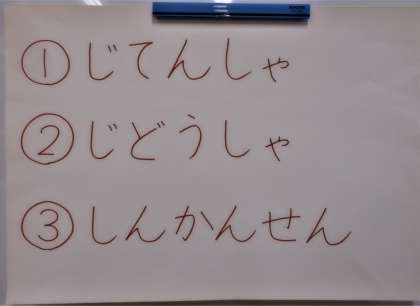 ① じてんしゃ
② じどうしゃ
③ しんかんせん